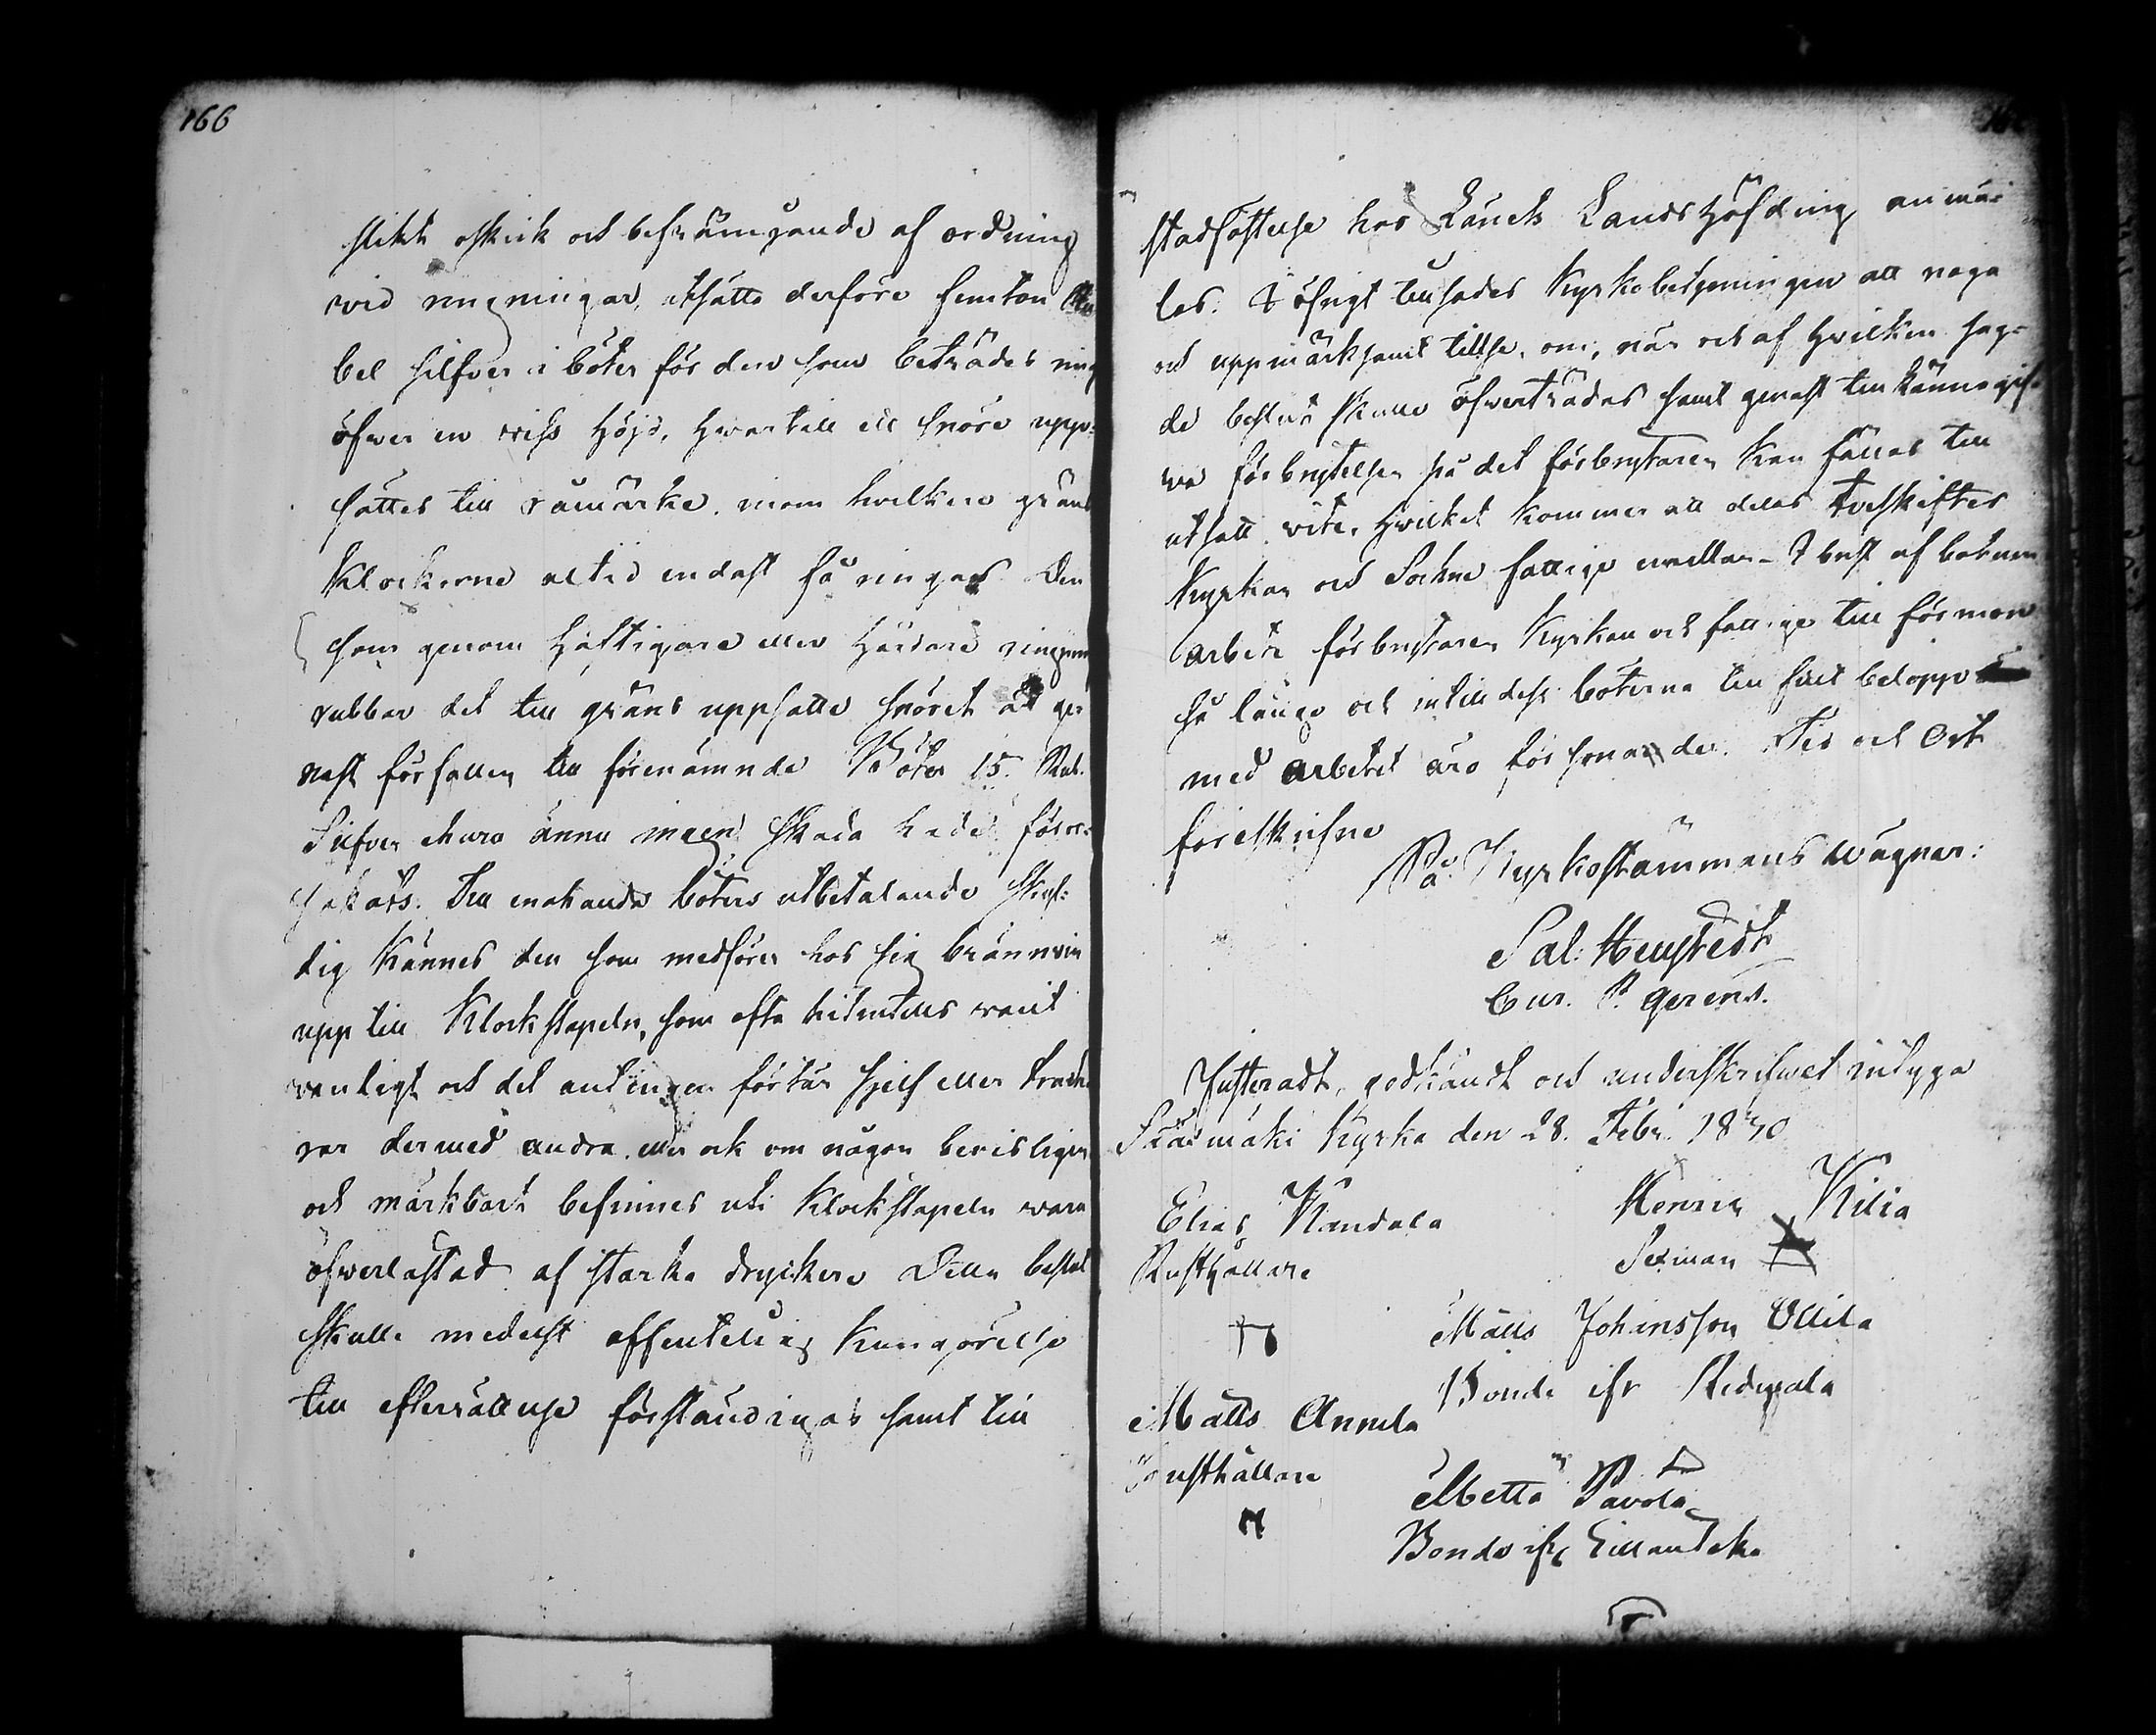 166
slikt oskick och befrämjande af ordning
vid ringningar, utsatte derföre femton Ru
bel silfver i böter för den som beträdes ringa
öfver en viss höjd, hvartill ett snöre upp-
sattes till råmärke, inom hvilken gräns
Klockorne altid endast få ringas. Den
som genom häftigare eller hårdare ringning
rubbar det till gräns uppsatte snöret är ge-
nast förfallen till förenämnde Böter 15. Rub.
Silfver ehuru ännu ingen skada hade föror-
sakats. Till enahanda böters utbetalande skyl-
dig kännes den som medförer hos sig brännvin
upp till Klockstapeln, som ofta hitintills varit
vanligt och det antingen förtär sjelf eller tracte
rar dermed andra, eller ock om någon bevisligen
och märkbart befinnes uti Klockstapeln vara
öfverlastad af starka drycker. Detta beslut
skulle medelst offentelig Kungörelse
till efterrättelse förständigas samt till
stadfästelse hos Länets Landshöfding anmä-
las. I öfrigt tillsades Kyrkobetjeningen att noga
och uppmärksamt tillse, om, när och af hvilken sag-
de beslut skulle öfverträdas samt genast tillkännagif-
va förbrytelsen på det förbrytaren kan fällas till
utsatt vite, hvilket kommer att delas tveskiftes
Kyrkan och Sockne fattige emellan. I brist af böterne
arbete förbrytaren Kyrkan och fattige till förmon
så länge och intill dess böterna till fullt belopp
med arbetet äro försonade. Tid och Ort
föreskrifne
På Kyrkostämmans vägnar:
Sal: Hengstedt
Cur. P. gerens.
Justeradt, godkändt och underskrifvet intyga
Sääxmäki Kyrka den 28. Febr. 1840
Elias Kandala
Rusthållare
Henric Kilia
Sexman
Matts Johansson Ollila
Bonde ifr
Matts Annila
Rusthållare
Matts Pavola
Bonde ifr